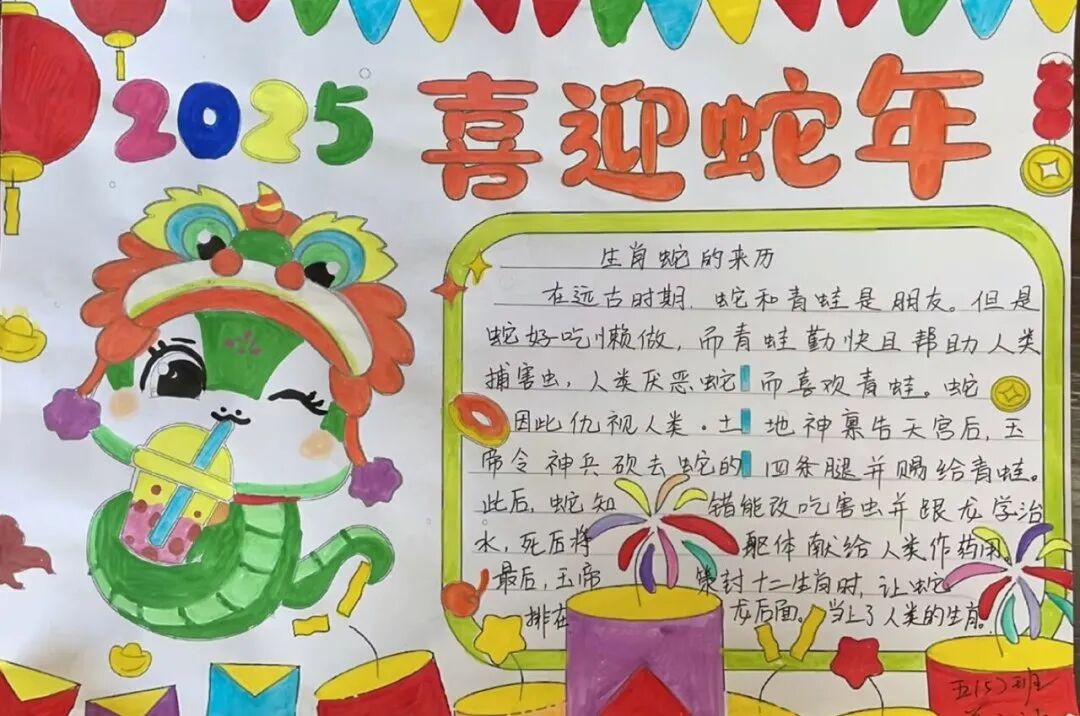 2025
喜迎蛇年
生肖蛇的来历
在远古时期,蛇和青蛙是朋友。但是
蛇好吃懒做,而青蛙勤快且帮助人类
捕害虫,人类厌恶蛇而喜欢青蛙。蛇
因此仇视人类.土地神禀告天宫后,玉
帝令神兵砍去蛇的四条腿并赐给青蛙。
此后,蛇知错能改吃害虫并跟龙学治
水,死后将躯体献给人类作药用
最后,玉帝策封十二生肖时,让蛇
排在龙后面。当上了人类的生肖。
五(5)班